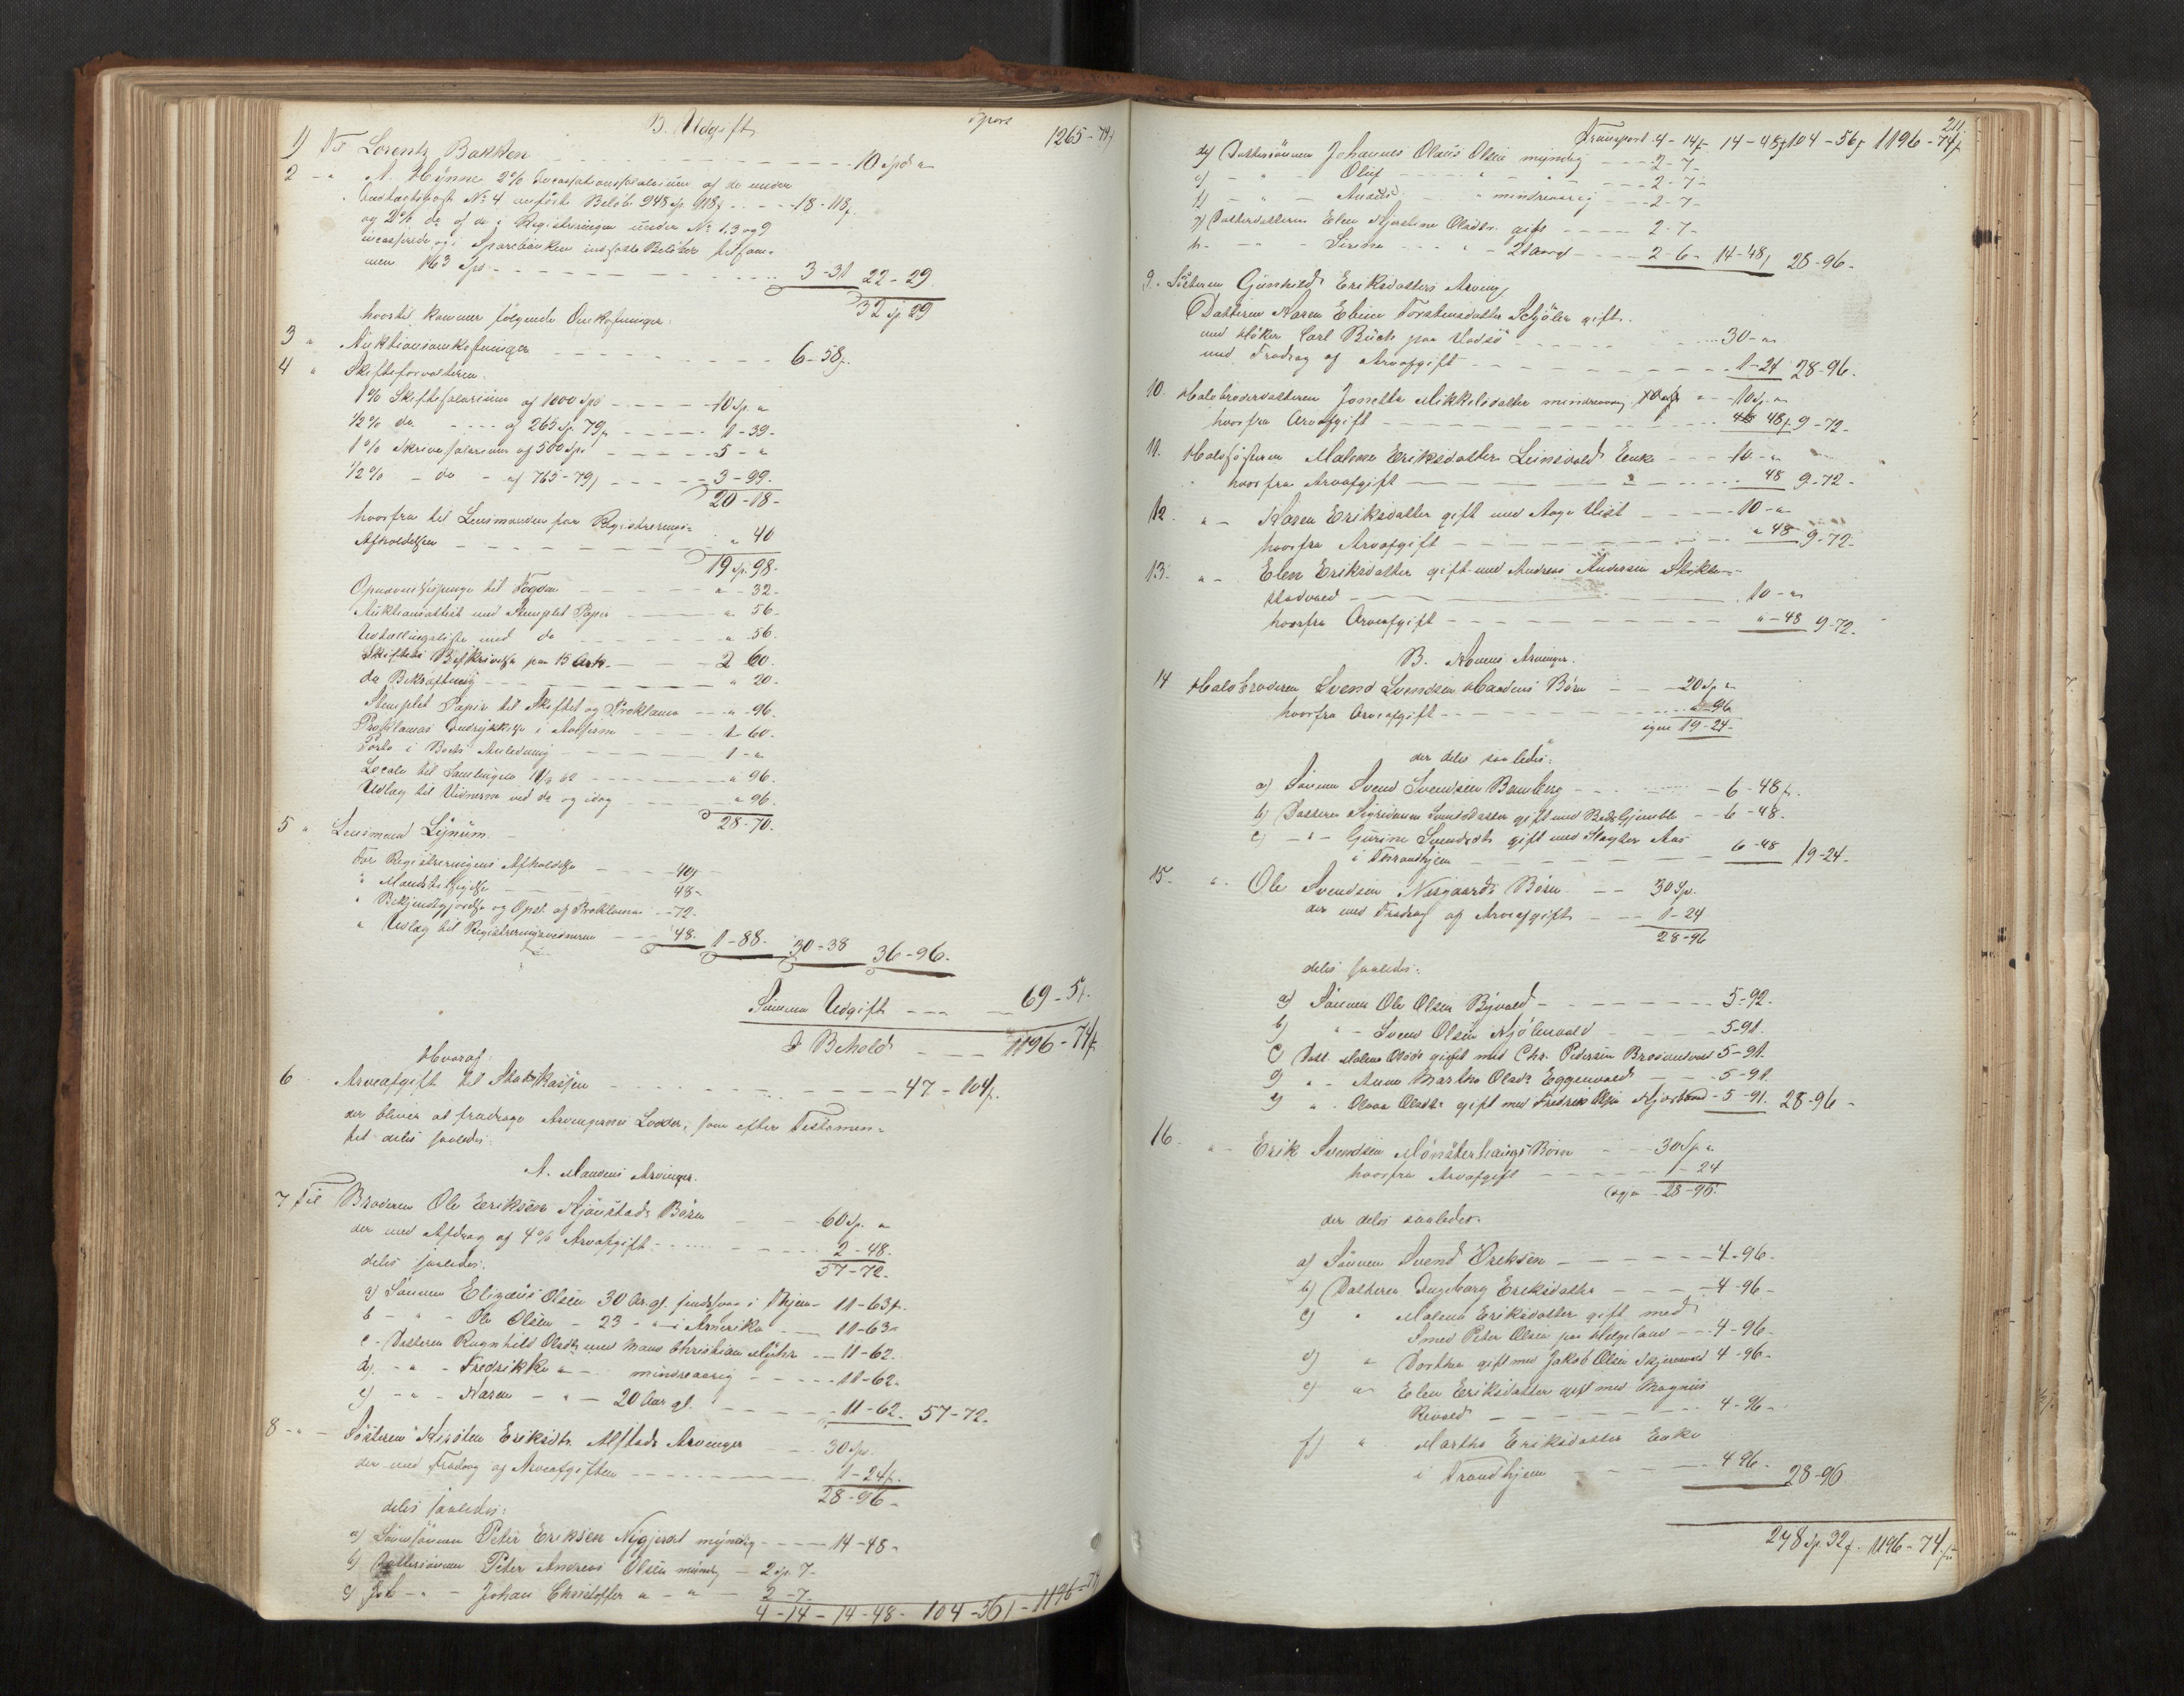 B. Udgift
Tpore 1265-79 f
1) Til Lorentz Bakken 10 Spd "
2 - " A. Hynne 2% Incassationssalarium af de under
Indtægtspost No 4 anførte Beløb 948 Sp 118 f 18-118 f
og 2% do af de i Registreringen under No 1, 3 og 9
incasserede og i Sparebanken indsatte Beløber tilsam-
men 163 Spd 3-31 22-29
32 Sp 29
hvortil kommer følgende Omkostninger:
3 " Auktionsomkostninger 6-58 f.
4 " Skifteforvalteren.
1% Skiftesalarium af 1000 Spd 10 Sp. "
1/2% do af 265 Sp. 79 f 1-39-
1% Skriversalarium af 500 Spd 5 - "
1/2% - do - af 765-79 f 3-99.
20-18-
hvorfra til Lensmanden for Registrerings-
Afholdelsen " 40
19 Sp. 98.
til Fogden " - 32-
Auktionsattest med Stemplet Papir " 56-
Udtællingsliste med do " 56.
Skiftets Beskrivelse paa 15 Ark. 2 60.
do Bekræftning " 20-
Stemplet Papir til Skiftet og Proklama " 96.
Proklamas Indrykkelse i Avisserne 1 60.
Porto i Boets Anledning 1 - "
Locale til Samlingen 11/3 62 " 96.
Udlæg til Vidnerne ved do og idag " 96.
28-70.
5 " Lensmand Lynum.
For Registreringens Afholdelse 40 f
" 48-
" Bekjendtgjørelse og Opsl. af Proklama 72-
" Udlæg til Registreringsvidnerne 48. 1-88. 30-38 36-96.
Summa Udgift 69-5 f.
I Behold 1196-74 f
Hvoraf:
6 Arveafgift til Statskassen 47-104 f.
der bliver at fradrage Arvingernes Lodder, som efter Testamen-
tet deles saaledes:
A. Mandens Arvinger.
7 Til Broderen Ole Eriksen Børn 60 Sp. "
der med Afdrag af 4% Arveafgift 2-48.
deles saaledes: 57-72.
a) Sønnen Elizæus Olsen 30 Aar gl. 11-63 f.
b - " - Ole Olsen - 23 - " - i Amerika 11-63 "
c - Datteren Ragnhild Olsdtr 11-62.
d) - " - Fredrikke " - mindreaarig 11-62-
e) - " - Karen - " - 20 Aar gl. 11-62. 57-72.
8 - " - Søsteren Kirsten Eriksdtr. Alstads Arvinger 30 Sp.
der med Fradrag af Arveafgiften 1-24 f.
28-96-
deles saaledes:
a) Sønnesønnen Peter Eriksen myndig 14-48-
b) Dattersønnen Peter Andreas Olsen myndig 2 Sp. 7-
c) - " - Johan Christoffer " - " 2-7-
4-14- 14-48- 104-56 f - 1196-74
211.
Transport 4-14 f 14-48 f 104-56 f 1196-74 f
d) Dattersønnen Johannes Olaus Olsen myndig 2-7-
e) - " - Oluf 2-7-
f) - " - mindreaarig 2-7-
g) Datterdatteren Elen Kjerstine Olsdtr. gift 2-7-
h - " - Sirena 2-6- 14-48 f 28-96-
9. Søsteren Gunhild Eriksdatters Arving
Datteren Karen Elene Torstensdatter gift
med Carl Buch paa Vadsø 30-"
med Fradrag af Arveafgift 1-24 28-96.
10. Halvbroderdatteren Jonetta Mikkelsdatter mindreaarig 10 Sp. "
hvorfra Arveafgift 48 f 9-72-
11. Halvsøsteren Malena Eriksdatter Leinsvold Enke 10-"
hvorfra Arveafgift 48 9-72-
12. " - Karen Eriksdatter gift med Aage Vist 10-"
hvorfra Arveafgift " 48 9-72-
13. " - Elen Eriksdatter gift med Andreas Andersen Stikle-
stadvald 10-"
hvorfra Arveafgift " - 48 9-72-
B. Konens Arvinger.
14 Halvbroderen Svend Svendsen Børn 20 Sp "
hvorfra Arveafgift " 96
igjen 19-24-
der deles saaledes:
a) Sønnen Svend Svendsen Bamberg 6-48 f.
b) Datteren Svendsdatter gift med 6-48.
c) - " - Gurine Svendsdtr gift med Aas
i Throndhjem 6-48 19-24-
15. " - Ole Svendsen Børn 30 Sp.
der med Fradrag af Arveafgift 1-24
28-96
deles saaledes:
a) Sønnen Ole Olsen Byvald 5-92-
b) " - Svend Olsen 5-91.
c) Datt. Malena Olsdr gift med Chr. Pedersen 5-91.
d) " - Anne Martha Olsdr Eggenvald 5-91.
e) " - Olava Olsdtr gift med Fredrik 5-91. 28-96-
16. " - Erik Svendsen Børn 30 Sp "
hvorfra Arveafgift 1-24
igjen 28-96.
der deles saaledes.
a) Sønnen Svend Eriksen 4-96-
b) Datteren Ingeborg Eriksdatter 4-96-
c) " Malena Eriksdatter gift med
Smed Peter Olsen paa Helgeland 4-96-
d) " Dorthea gift med Jakob Olsen 4-96-
e) " Elen Eriksdatter gift med Magnus
4-96-
f) " Martha Eriksdatter Enke
i Trondhjem 4 96- 28-96
248 Sp 32 f. 1196-74 f